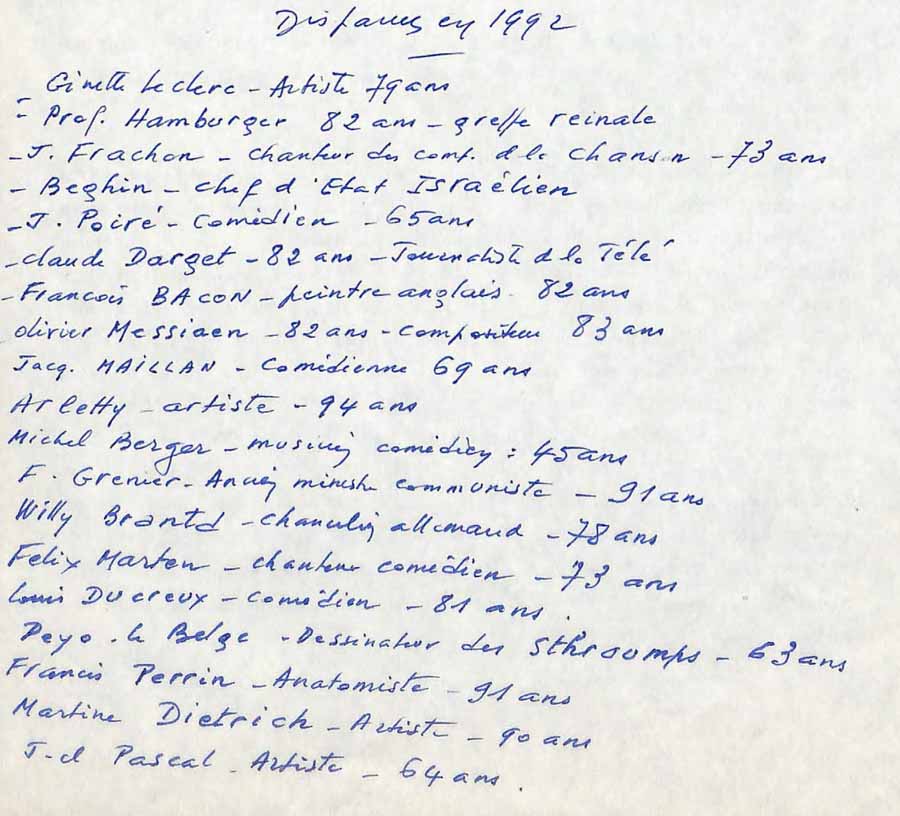 Disparus en 1992
Ginette Leclerc - Artiste 79 ans
- Prof. Hamburger 82 ans - greffe reinale
- J. Frachon - chanteur des comp. d la chanson - 73 ans
- Beghin - chef d'Etat Israélien
- J. Poiré - Comédien - 65 ans
- Claude Darget - 82 ans - Journaliste d la Télé
- Francois BACON - peintre anglais. 82 ans
olivier Messiaen - 82 ans - compositeur 83 ans
Jacq. MAILLAN - Comédienne 69 ans
Arletty - artiste - 94 ans
Michel Berger - musicien comédien : 45 ans
F. Grenier - Ancien ministre communiste - 91 ans
Willy Brantd - chancelier allemand - 78 ans
Felix Marten - chanteur comédien - 73 ans
Louis Ducreux - comédien - 81 ans.
Peyo. le Belge - Dessinateur des Sthroumps - 63 ans
Francis Perrin - Anatomiste - 91 ans
Martine Dietrich - Artiste - 90 ans
J-cl Pascal - Artiste - 64 ans.